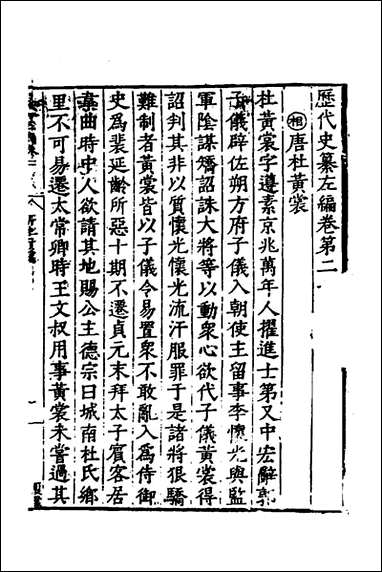 歷代史纂左編卷第二
相唐杜黃裳
杜黃裳字遵素京兆萬年人擢進士第又中宏辭郭
子儀辟佐朔方府子儀入朝使主留事李懷光與監
軍陰謀矯詔誅大將等以動衆心欲代子儀黃裳得
詔判其非以質懷光懷光流汗服罪于是諸將狠驕
難制者黃裳皆以子儀令易置衆不敢亂入爲侍御
史爲裴延齡所惡十期不遷貞元末拜太子賓客居
韋曲時中人欲請其地賜公主德宗曰城南杜氏鄉
里不可易遷太常卿時王文叔用事黃裳未嘗過其